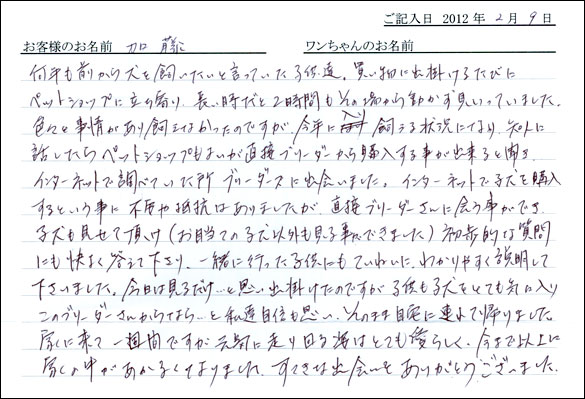 ご記入日 2012年 2月 9日
お客様のお名前 加藤 ワンちゃんのお名前
何年も前から犬を飼いたいと言っていた子供達。買い物に出掛けるたびに
ペットショップに立ち寄り、長い時だと2時間もその場から動かず見いっていました。
色々と事情があり飼えなかったのですが、今年に入り飼える状況になり、知人に
話したらペットショップもよいが直接ブリーダーから購入する事が出来ると聞き、
インターネットで調べていた所ブリーダーズに出会いました。インターネットで子犬を購入
するという事に不安や抵抗はありましたが、直接ブリーダーさんに会う事ができ
子犬も見せて頂け(お目当ての子犬以外も見る事ができました)初歩的な質問
にも快よく答えて下さり、一緒に行った子供にもていねいに、わかりやすく説明して
下さいました。今日は見るだけ…と思い出掛けたのですが子供も子犬をとても気に入り
このブリーダーさんからなら…と私達自信も思い、そのまま自宅に連れて帰りました。
家に来て一週間ですが元気に走り回る姿はとても愛らしく、今まで以上に
家の中があかるくなりました。すてきな出会いをありがとうございました。